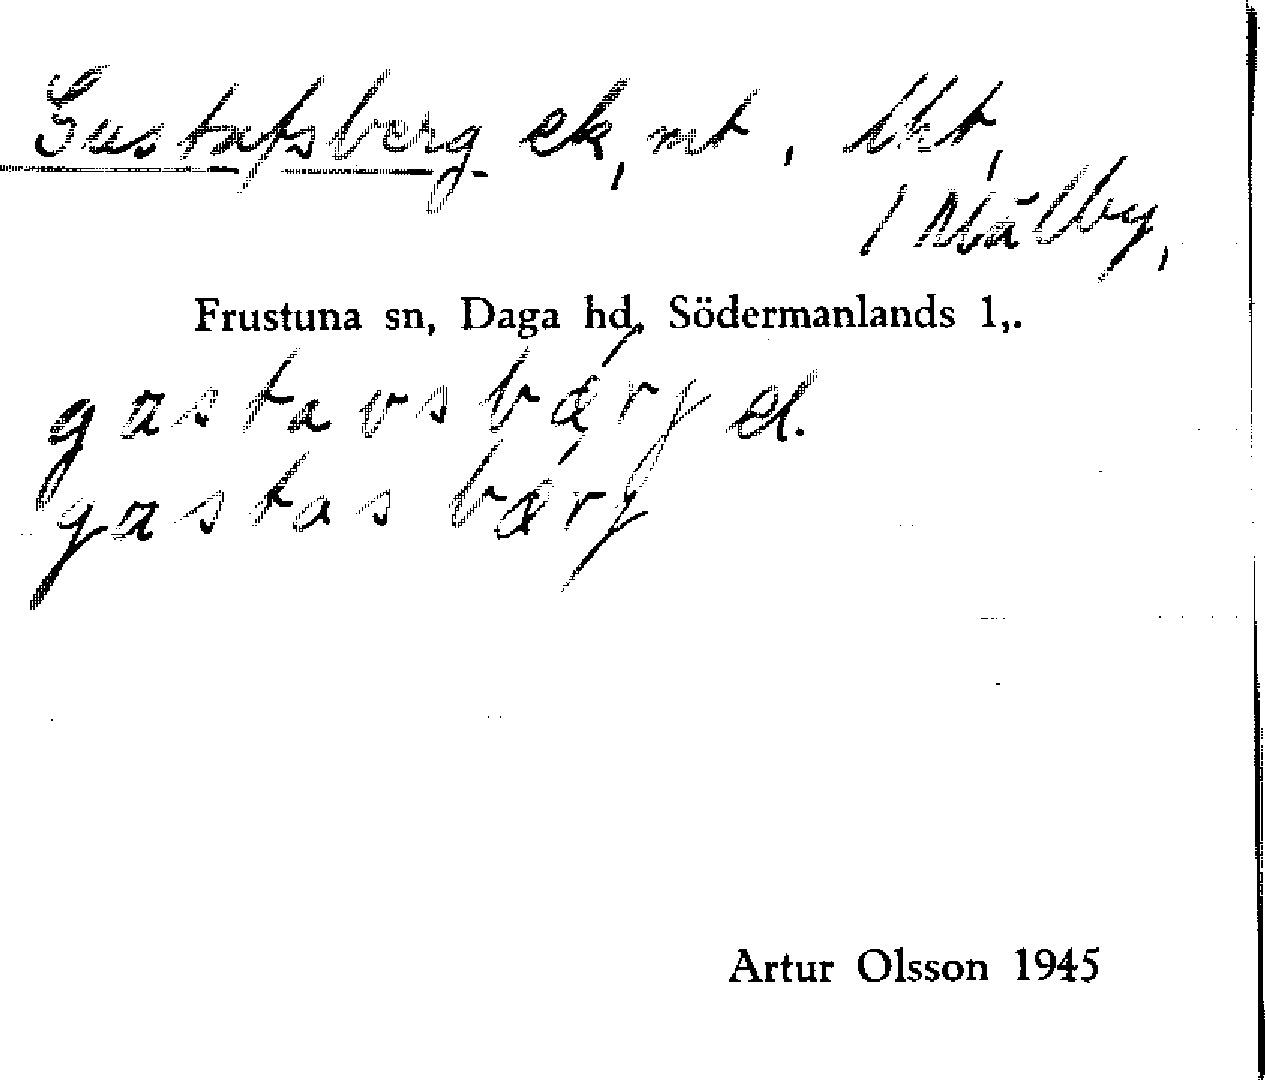 Gustafsberg ek, mt, lht,
1 Målby,
Frustuna sn, Daga hd, Södermanlands l,.
gustavsbärj el.
gustasbärj
Artur Olsson 1945